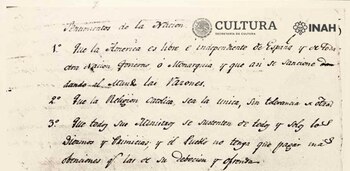 Sentimientos de la Nacion
CULTURA
SECRETARÍA DE CULTURA
INAH
1.º Que la America es libre é independiente de España y de toda
otra Nacion, Govierno ó Monarquia, y que asi se sancione
dando al Mundo las razones.
2.º Que la Religion Catolica sea la unica, sin tolerancia de otra
3.º Que todos sus Ministros se sustenten de todos y solos los
Diezmos y Primicias, y el Pueblo no tenga que pagar mas
obenciones q.e las de su devocion y ofrenda